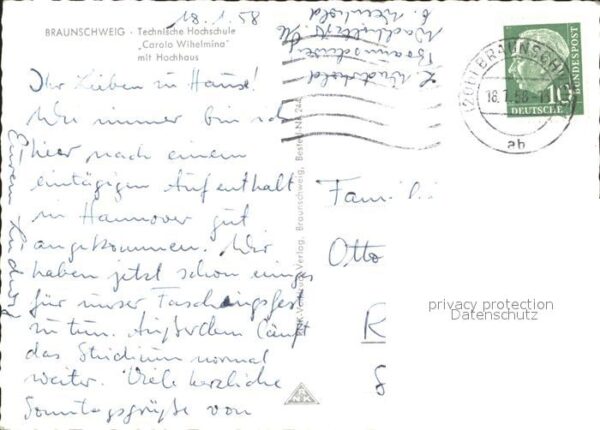 18.1.58
BRAUNSCHWEIG - Technische Hochschule
"Carola Wilhelmina"
mit Hochhaus
Ihr Lieben zu Hause!
Wie immer bin ich
hier nach einem
eintägigen Aufenthalt
in Hannover gut
angekommen. Wir
haben jetzt schon einiges
für unser Faschingsfest
zu tun. Außerdem läuft
das Studium normal
weiter. Viele herzliche
Sonntagsgrüße von
Braunschweig
Verlag, Braunschweig, Bestell-Nr.
(20b) BRAUNSCHWEIG
18.1.58
ab
10
DEUTSCHE
BUNDESPOST
Familie
Otto
K
privacy protection
Datenschutz